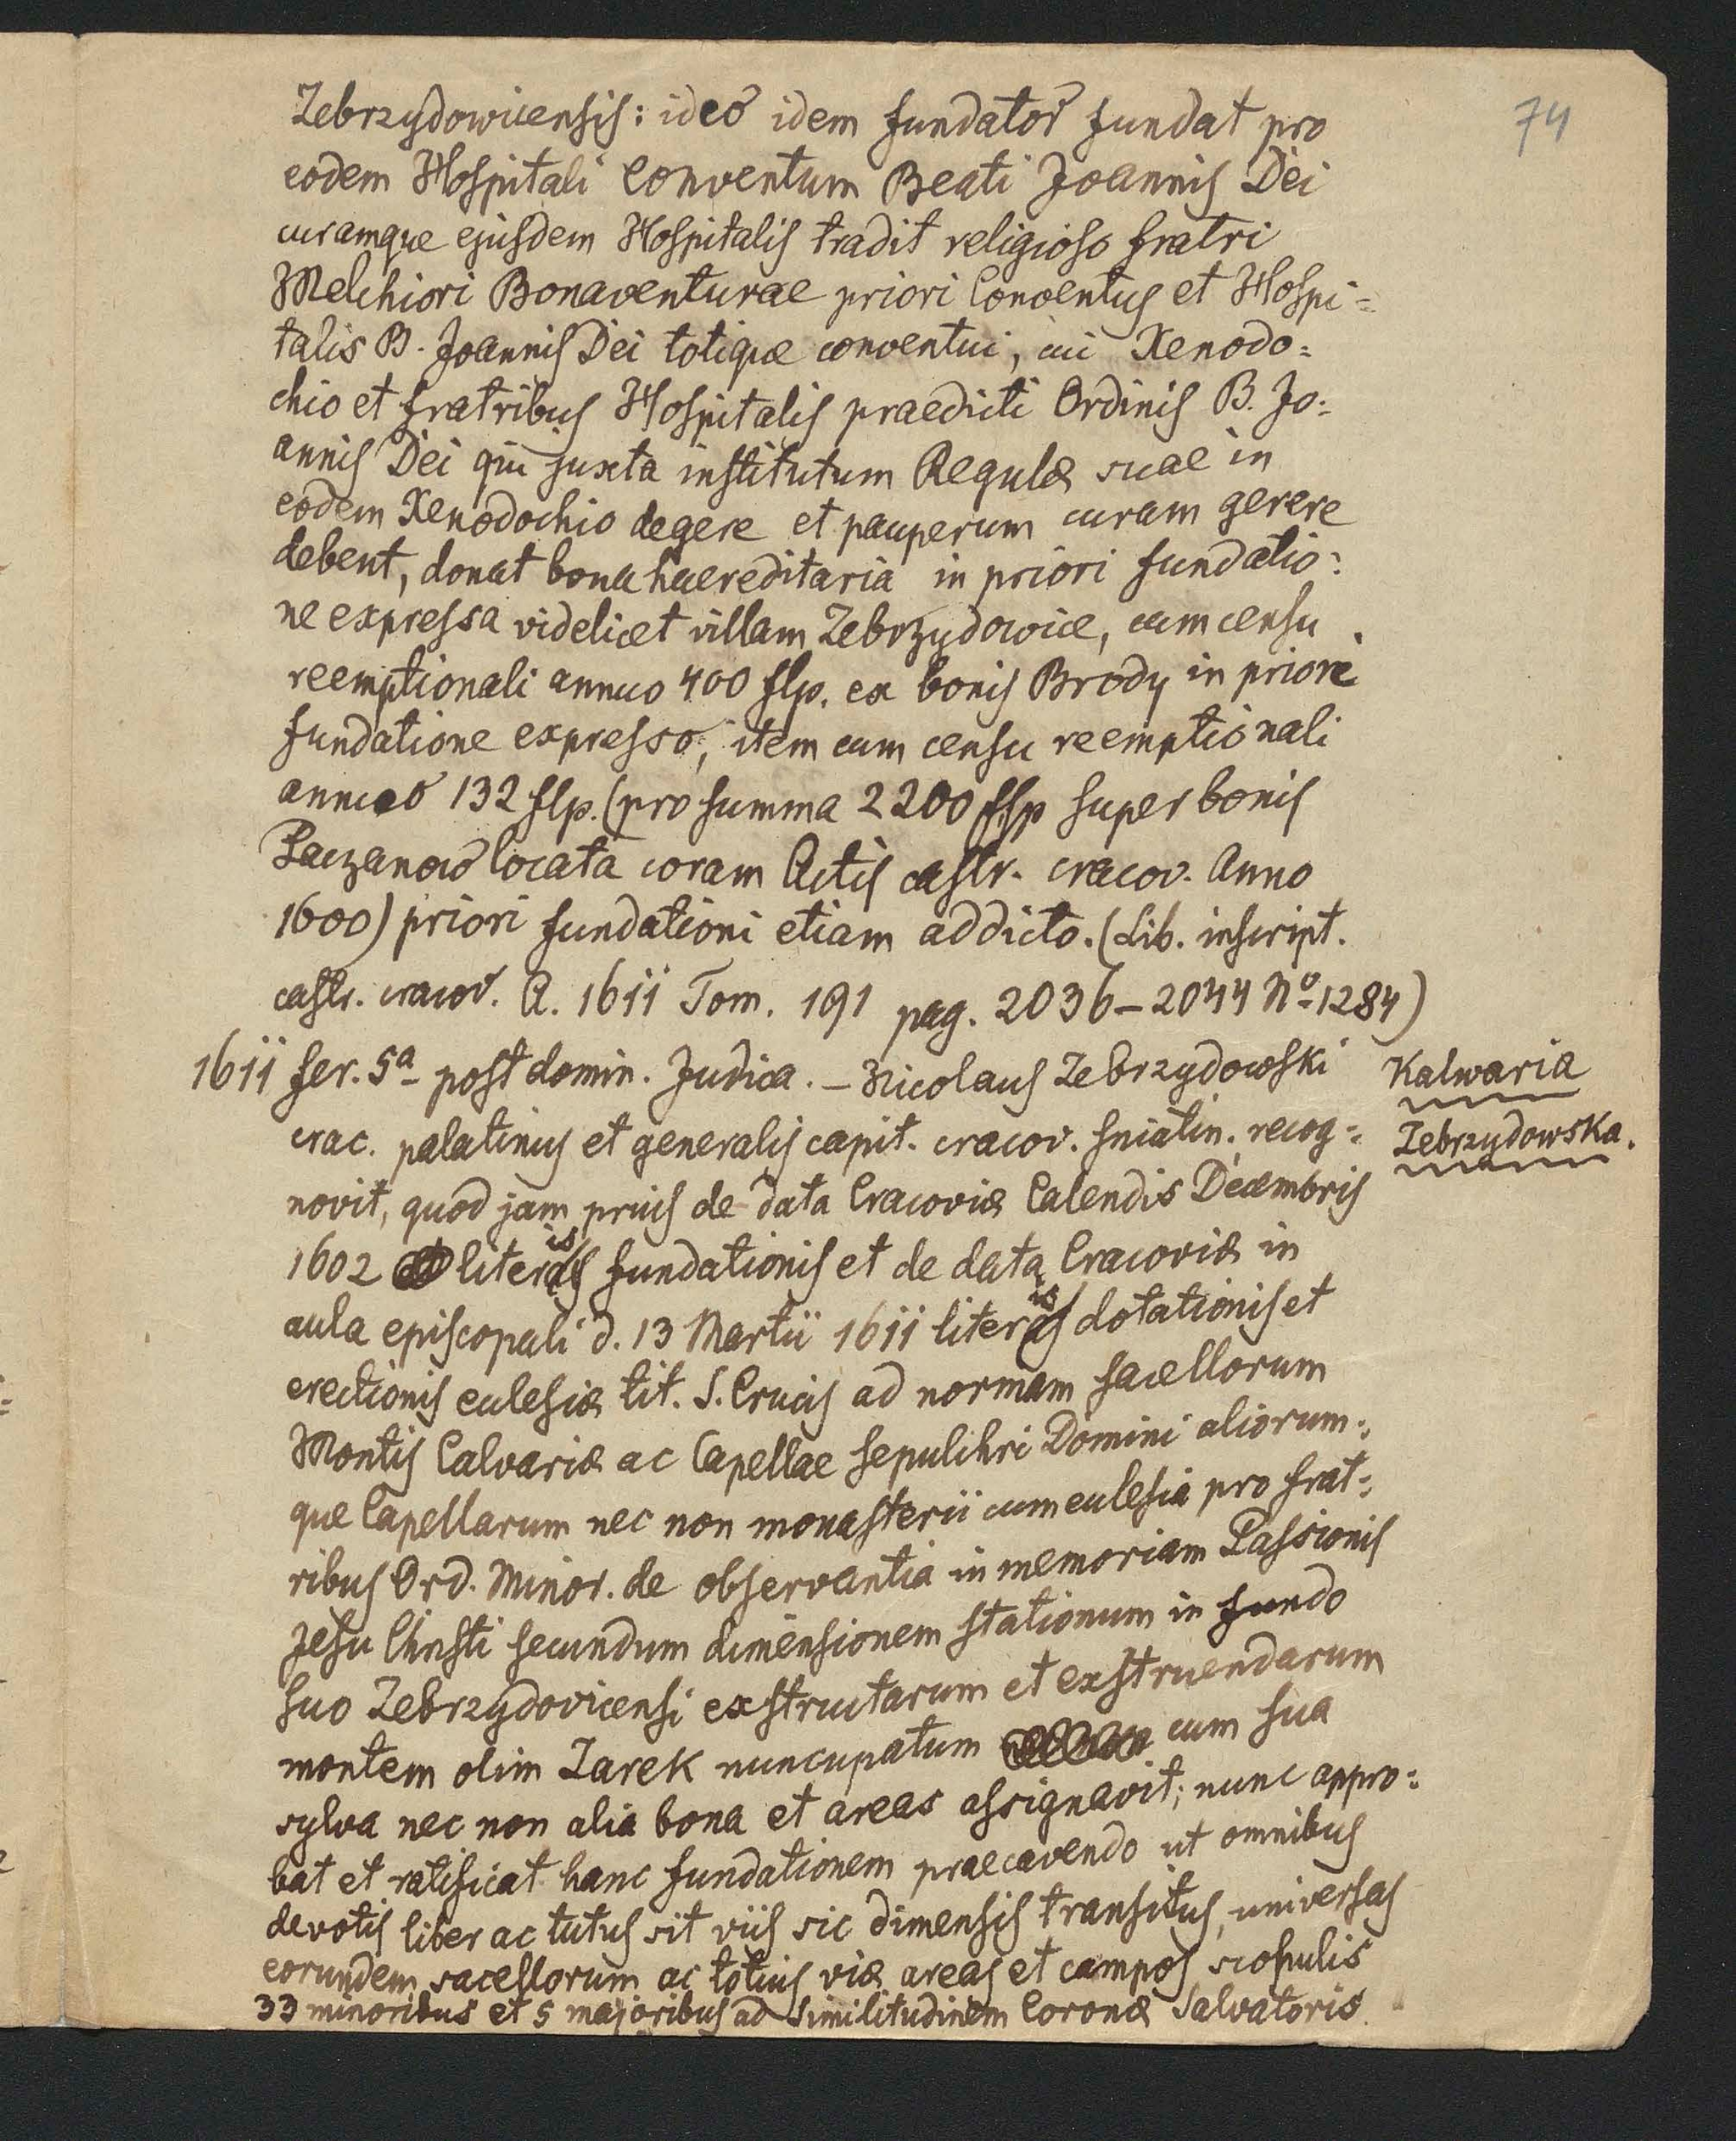 74
Zebrzydowicensis: ideo idem fundator fundat pro
eodem Hospitali Conventum Beati Joannis Dei
curamque ejusdem Hospitalis tradit religioso fratri
Melchiori Bonaventurae priori Conventus et Hospi=
talis B. Joannis Dei totique conventui, cui Xenodo=
chio et fratribus Hospitalis praedicti Ordinis B. Jo=
annis Dei qui juxta institutum Regulæ suae in
eodem Xenodochio degere et pauperum curam gerere
debent, donat bona haereditaria in priori fundatio=
ne expressa videlicet villam Zebrzydowice, cum censu
reemptionali annuo 400 flp. ex bonis Brody in priore
fundatione expresso, item cum censu reemptionali
annuo 132 flp. (pro summa 2200 flp super bonis
Paczanow locata coram Actis castr. cracov. Anno
1600) priori fundationi etiam addicto. (Lib. inscript.
castr. cracov. A. 1611 Tom. 191 pag. 2036–2044 No 1284)
1611 fer. 5a post domin. Judica. – Nicolaus Zebrzydowski
crac. palatinus et generalis capit. cracov. sniatin. recog=
novit, quod jam prius de data Cracoviæ Calendis Decembris
1602 literis fundationis et de data Cracoviæ in
aula episcopali d. 13 Martii 1611 literis dotationis et
erectionis eclesiæ tit. S. Crucis ad normam sacellorum
Montis Calvariæ ac Capellae Sepulchri Domini aliorum=
que Capellarum nec non monasterii cum eclesia pro frat=
ribus Ord. Minor. de observantia in memoriam Passionis
Jesu Christi secundum dimensionem stationum in fundo
suo Zebrzydovicensi exstructarum et exstruendarum
montem olim Zarek nuncupatum cum sua
sylva nec non alia bona et areas assignavit; nunc appro=
bat et ratificat hanc fundationem praecavendo ut omnibus
devotis liber ac tutus sit viis sic dimensis transitus, universas
eorundem sacellorum ac totius viæ areas et campos scopulis
33 minoribus et 5 majoribus ad similitudinem Coronæ Salvatoris
Kalwaria
Zebrzydowska.